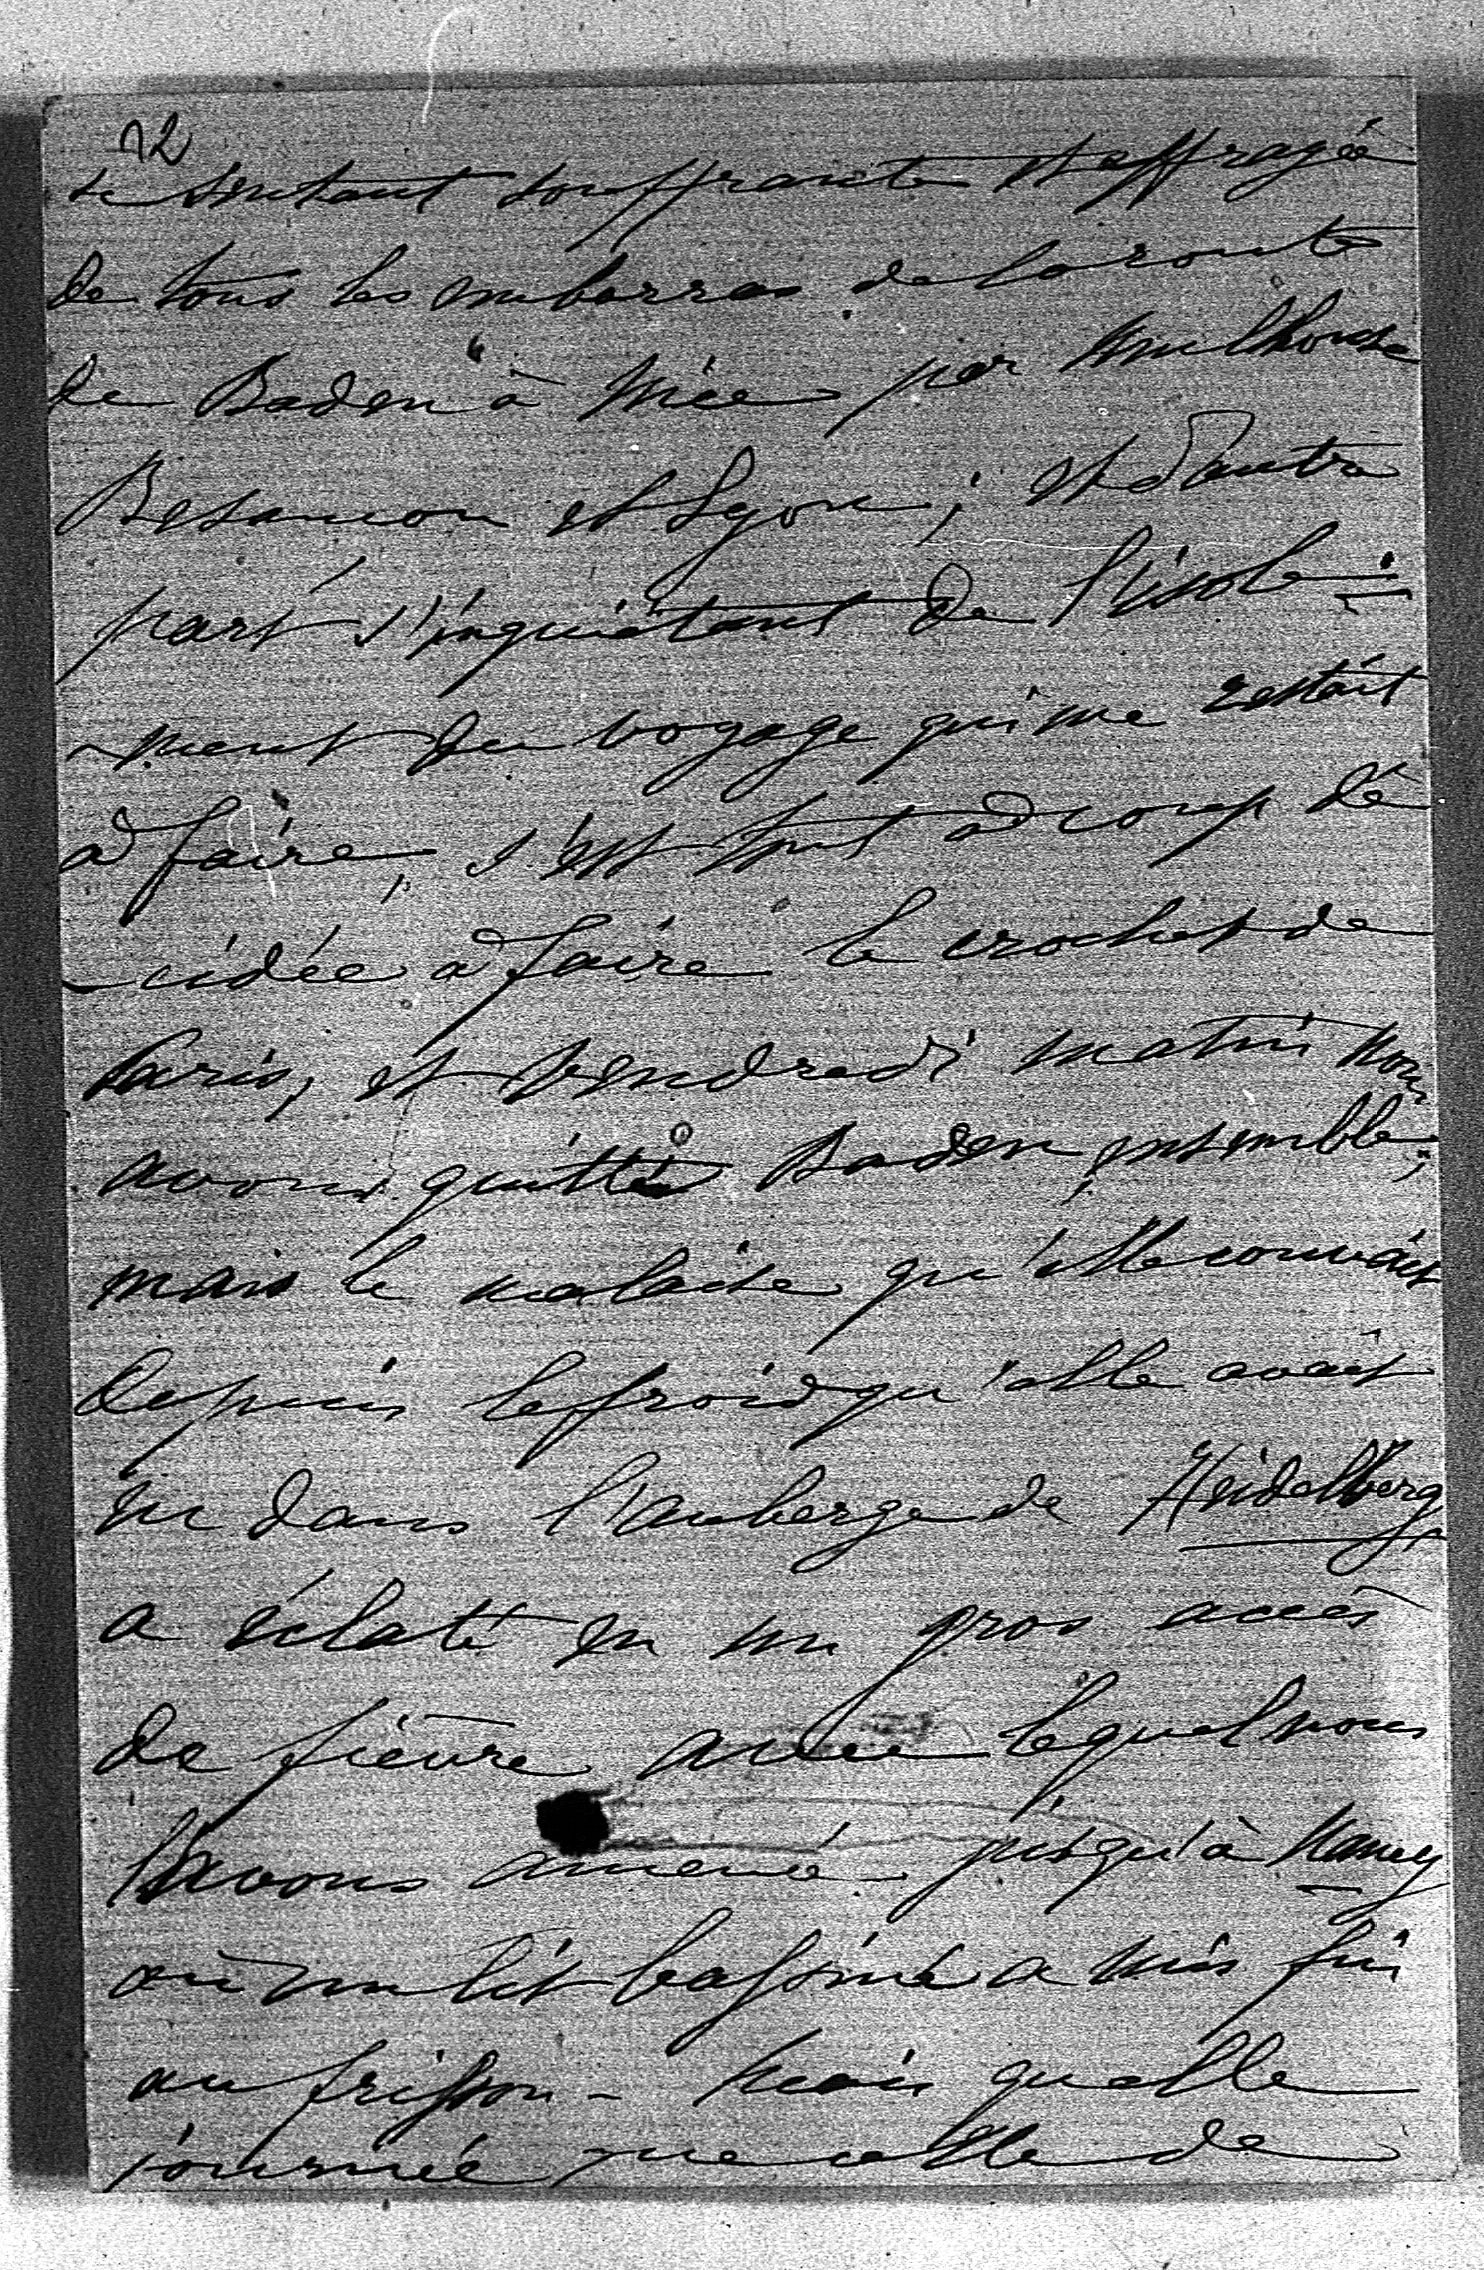 72
se sentant souffrante et effrayée
de tous les embarras de la route
de Baden à Nice par Mulhouse
Besancon et Lyon ; et d'autre
part s'inquiétant de l'isole=
ment du voyage qui me restait
à faire, s'est tout à coup dé
cidée à faire le crochet de
Paris, et vendredi matin nous
avons quitté Baden ensemble;
mais le malaise qu'elle couvait
depuis le froid qu'elle avait
eu dans l'auberge de Heidelberg
a éclaté en un gros accès
de fièvre avec lequel nous
l'avons amené jusqu'à Nancy
où un lit bassiné a mis fin
au frisson - Mais quelle
journée que celle de